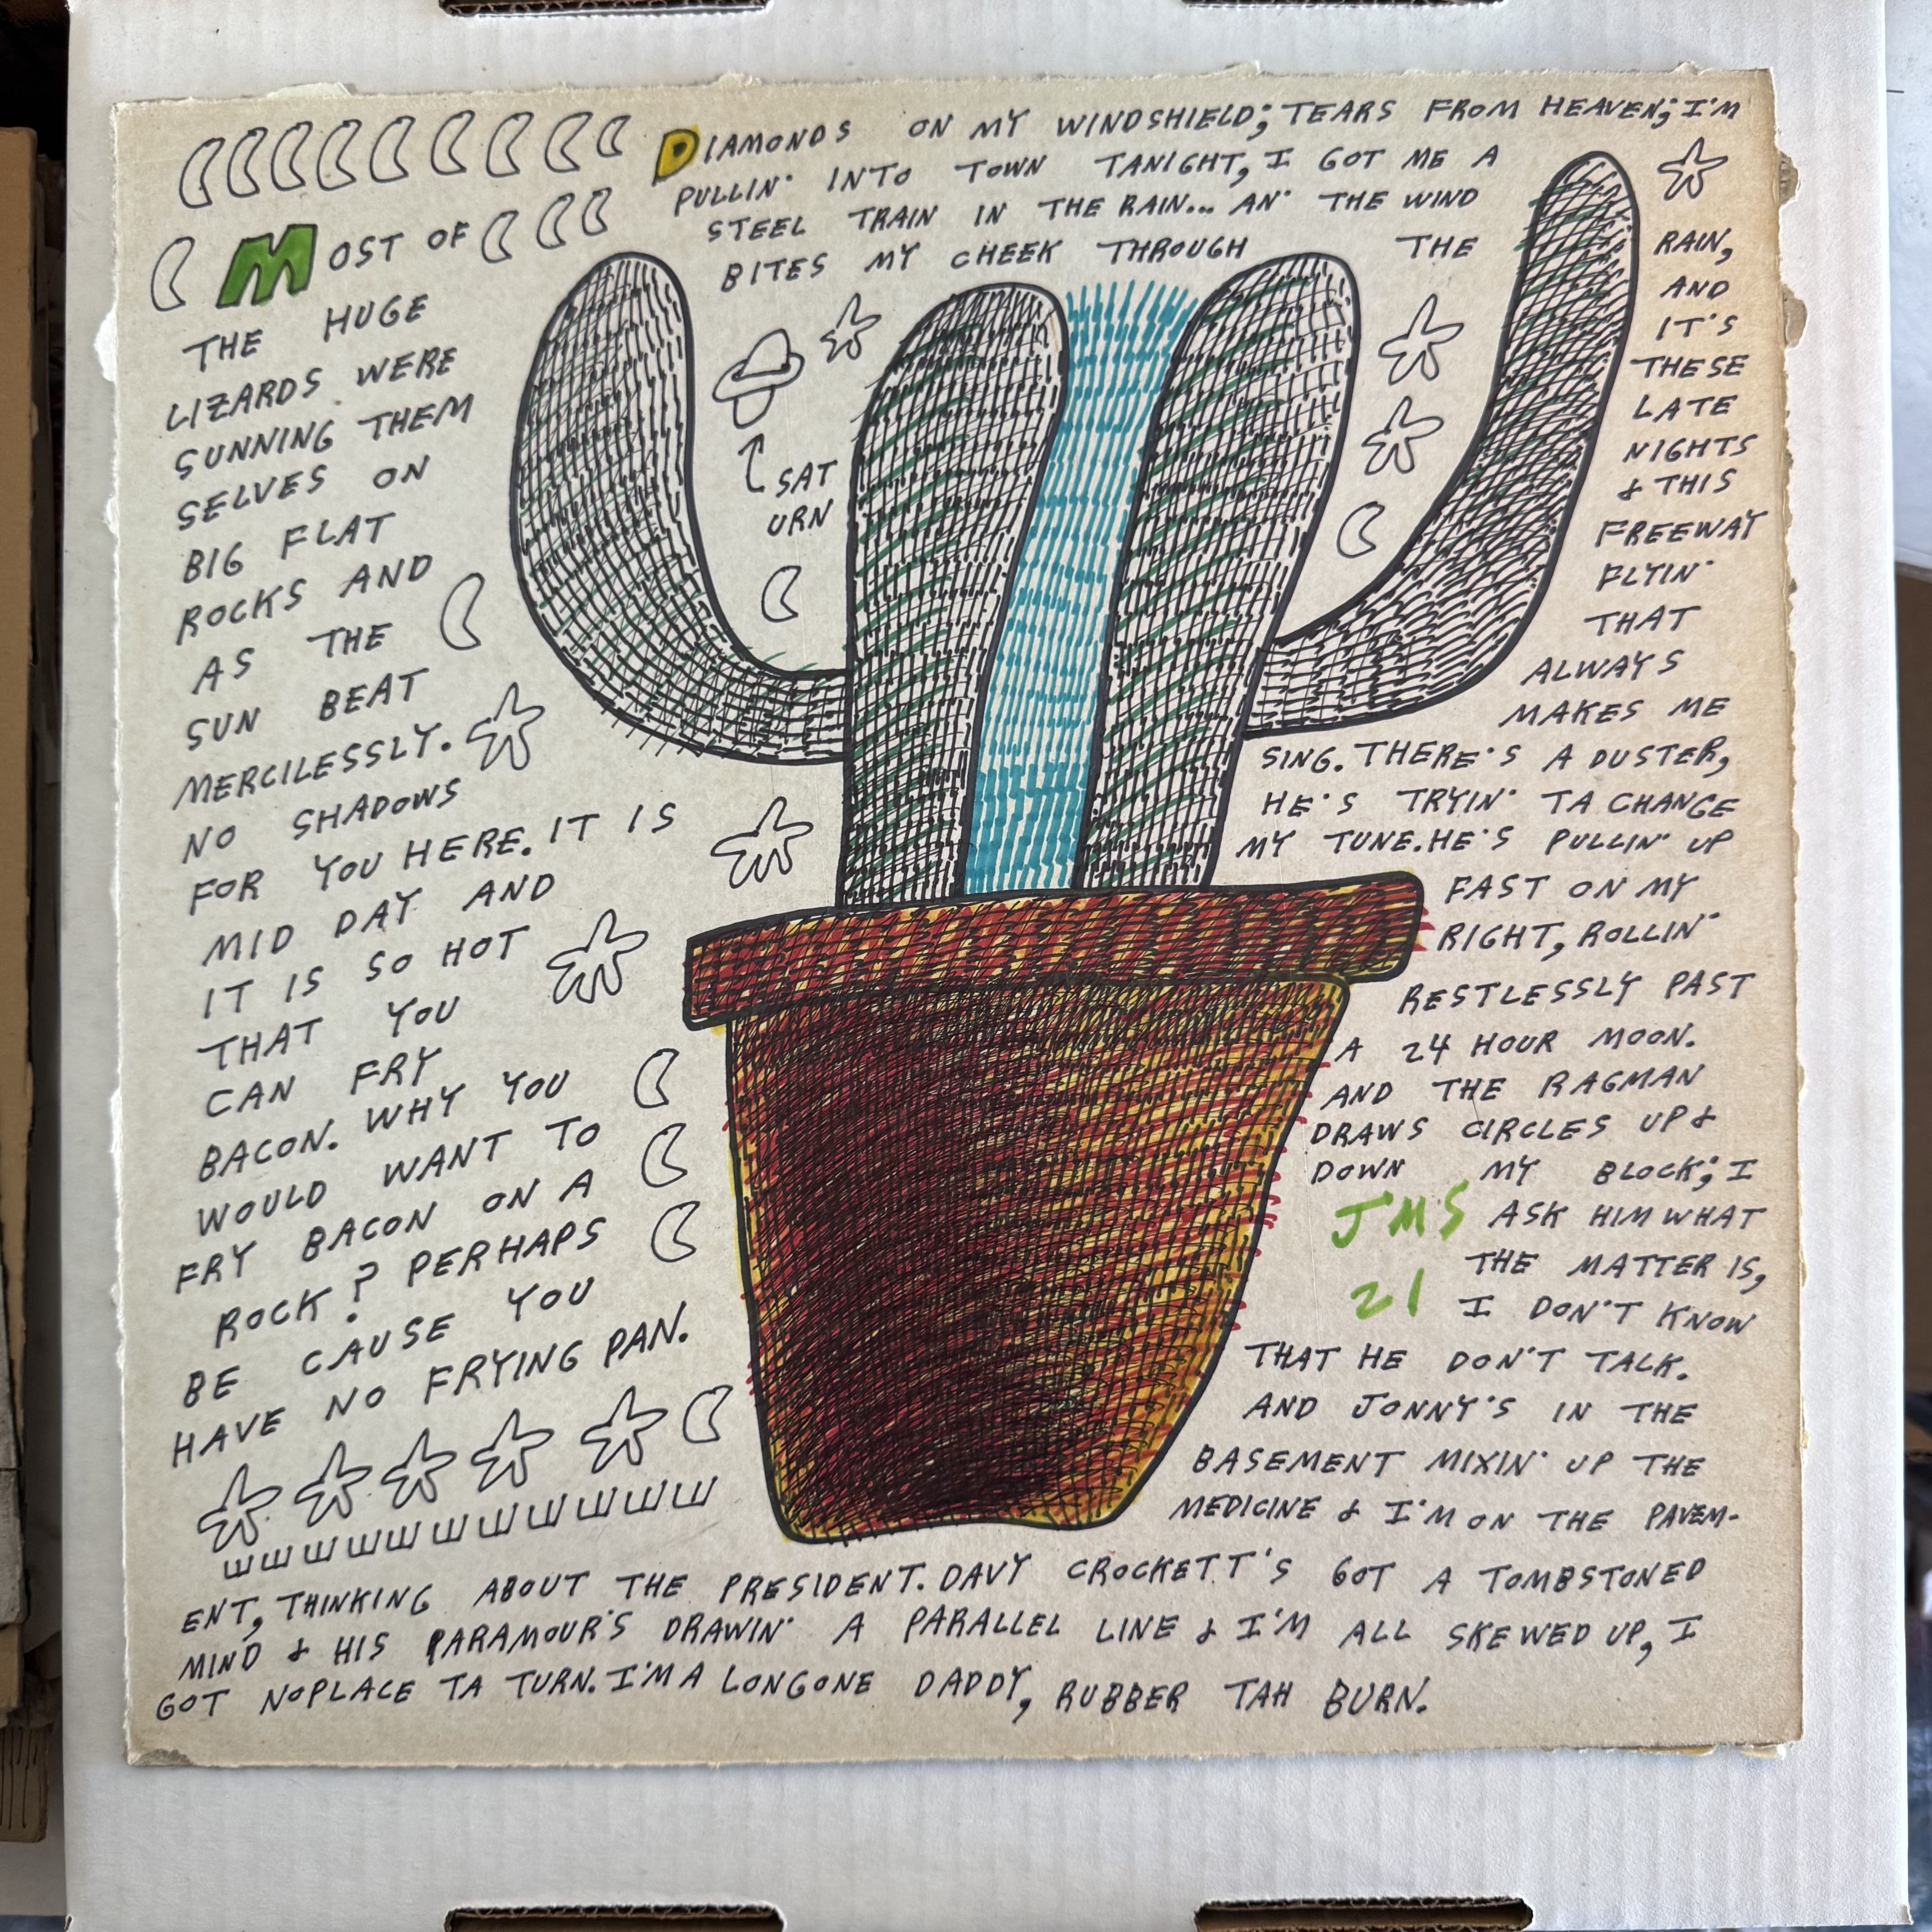 MOST OF
THE HUGE
LIZARDS WERE
SUNNING THEM
SELVES ON
BIG FLAT
ROCKS AND
AS THE
SUN BEAT
MERCILESSLY.
NO SHADOWS
FOR YOU HERE. IT IS
MID DAY AND
IT IS SO HOT
THAT YOU
CAN FRY
BACON. WHY YOU
WOULD WANT TO
FRY BACON ON A
ROCK? PERHAPS
BE CAUSE YOU
HAVE NO FRYING PAN.
DIAMONDS ON MY WINDSHIELD; TEARS FROM HEAVEN; I'M
PULLIN' INTO TOWN TANIGHT, I GOT ME A
STEEL TRAIN IN THE RAIN... AN' THE WIND
BITES MY CHEEK THROUGH THE
RAIN,
AND
IT'S
THESE
LATE
NIGHTS
& THIS
FREEWAY
FLYIN'
THAT
ALWAYS
MAKES ME
SING. THERE'S A DUSTER,
HE'S TRYIN' TA CHANGE
MY TUNE. HE'S PULLIN' UP
FAST ON MY
RIGHT, ROLLIN'
RESTLESSLY PAST
A 24 HOUR MOON.
AND THE RAGMAN
DRAWS CIRCLES UP &
DOWN MY BLOCK; I
ASK HIM WHAT
THE MATTER IS,
I DON'T KNOW
THAT HE DON'T TALK.
AND JONNY'S IN THE
BASEMENT MIXIN' UP THE
MEDICINE & I'M ON THE PAVEM-
ENT, THINKING ABOUT THE PRESIDENT. DAVY CROCKETT'S GOT A TOMBSTONED
MIND & HIS PARAMOUR'S DRAWIN' A PARALLEL LINE & I'M ALL SKEWED UP, I
GOT NOPLACE TA TURN. I'M A LONGONE DADDY, RUBBER TAH BURN.
SAT
URN
JMS
21